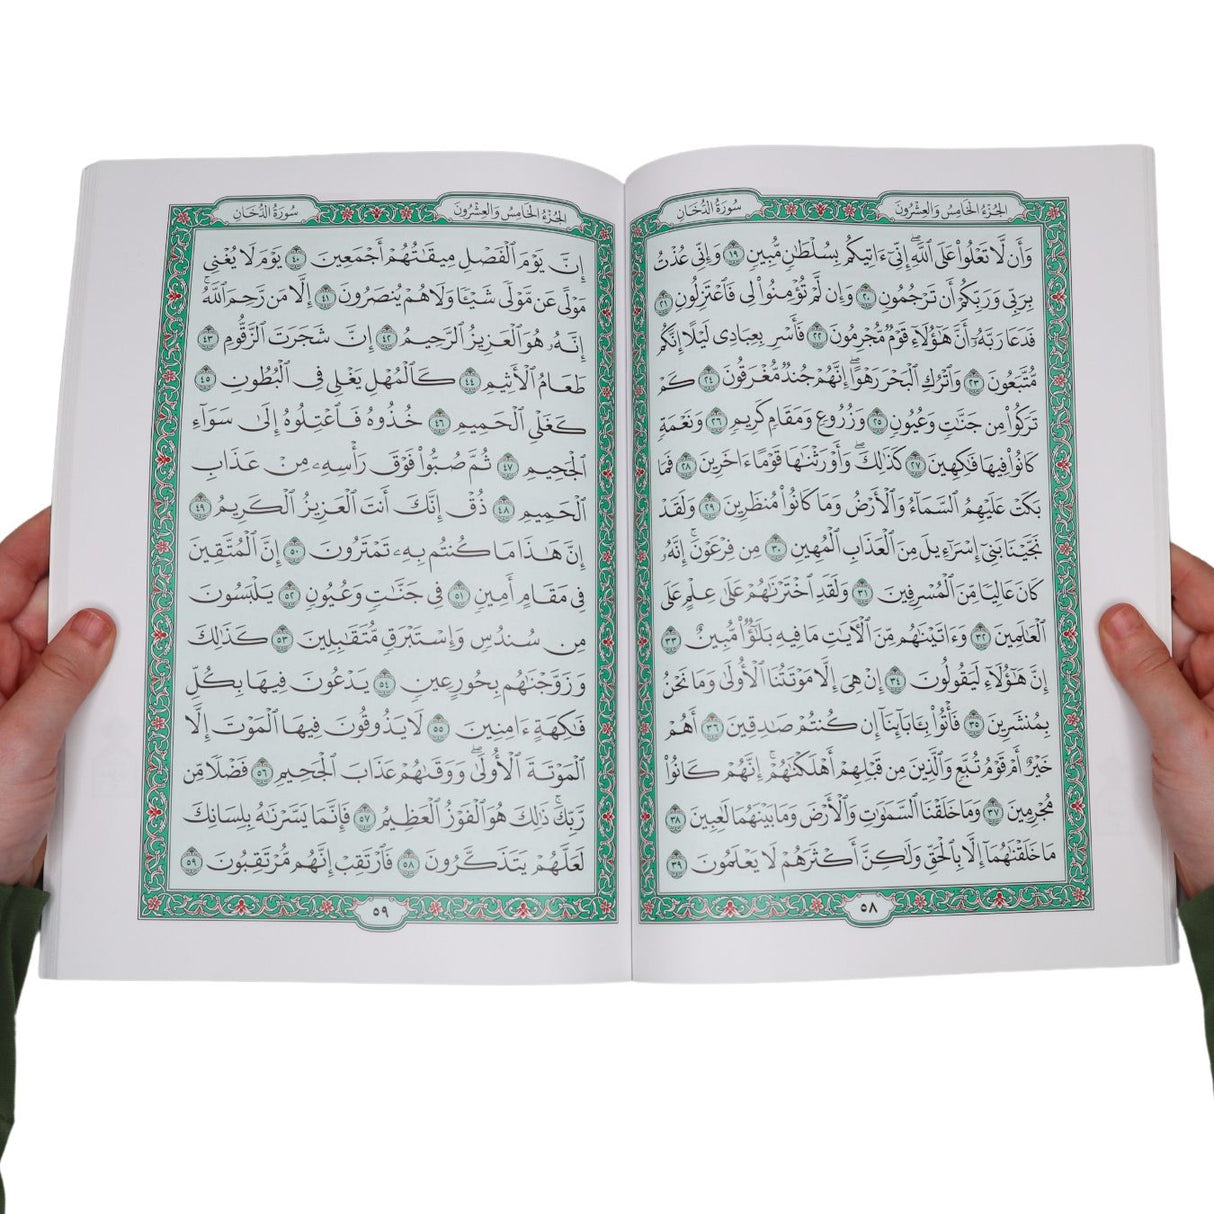 الجُزْءُ الخَامِسُ وَالعِشْرُونَ
سُورَةُ الدُّخَانِ
وَأَن لَّا تَعْلُوا۟ عَلَى ٱللَّهِ ۖ إِنِّىٓ ءَاتِيكُم بِسُلْطَٰنٍ مُّبِينٍ ١٩ وَإِنِّى عُذْتُ
بِرَبِّى وَرَبِّكُمْ أَن تَرْجُمُونِ ٢٠ وَإِن لَّمْ تُؤْمِنُوا۟ لِى فَٱعْتَزِلُونِ ٢١
فَدَعَا رَبَّهُۥٓ أَنَّ هَٰٓؤُلَآءِ قَوْمٌ مُّجْرِمُونَ ٢٢ فَأَسْرِ بِعِبَادِى لَيْلًا إِنَّكُم
مُّتَّبَعُونَ ٢٣ وَٱتْرُكِ ٱلْبَحْرَ رَهْوًا ۖ إِنَّهُمْ جُندٌ مُّغْرَقُونَ ٢٤ كَمْ
تَرَكُوا۟ مِن جَنَّٰتٍ وَعُيُونٍ ٢٥ وَزُرُوعٍ وَمَقَامٍ كَرِيمٍ ٢٦ وَنَعْمَةٍ
كَانُوا۟ فِيهَا فَٰكِهِينَ ٢٧ كَذَٰلِكَ ۖ وَأَوْرَثْنَٰهَا قَوْمًا ءَاخَرِينَ ٢٨ فَمَا
بَكَتْ عَلَيْهِمُ ٱلسَّمَآءُ وَٱلْأَرْضُ وَمَا كَانُوا۟ مُنظَرِينَ ٢٩ وَلَقَدْ
نَجَّيْنَا بَنِىٓ إِسْرَٰٓءِيلَ مِنَ ٱلْعَذَابِ ٱلْمُهِينِ ٣٠ مِن فِرْعَوْنَ ۚ إِنَّهُۥ
كَانَ عَالِيًا مِّنَ ٱلْمُسْرِفِينَ ٣١ وَلَقَدِ ٱخْتَرْنَٰهُمْ عَلَىٰ عِلْمٍ عَلَى
ٱلْعَٰلَمِينَ ٣٢ وَءَاتَيْنَٰهُم مِّنَ ٱلْءَايَٰتِ مَا فِيهِ بَلَٰٓؤٌا۟ مُّبِينٌ ٣٣
إِنَّ هَٰٓؤُلَآءِ لَيَقُولُونَ ٣٤ إِنْ هِىَ إِلَّا مَوْتَتُنَا ٱلْأُولَىٰ وَمَا نَحْنُ
بِمُنشَرِينَ ٣٥ فَأْتُوا۟ بِـَٔابَآئِنَآ إِن كُنتُمْ صَٰدِقِينَ ٣٦ أَهُمْ
خَيْرٌ أَمْ قَوْمُ تُبَّعٍ وَٱلَّذِينَ مِن قَبْلِهِمْ ۚ أَهْلَكْنَٰهُمْ ۖ إِنَّهُمْ كَانُوا۟
مُجْرِمِينَ ٣٧ وَمَا خَلَقْنَا ٱلسَّمَٰوَٰتِ وَٱلْأَرْضَ وَمَا بَيْنَهُمَا لَٰعِبِينَ ٣٨
مَا خَلَقْنَٰهُمَآ إِلَّا بِٱلْحَقِّ وَلَٰكِنَّ أَكْثَرَهُمْ لَا يَعْلَمُونَ ٣٩
٥٨
الجُزْءُ الخَامِسُ وَالعِشْرُونَ
سُورَةُ الدُّخَانِ
إِنَّ يَوْمَ ٱلْفَصْلِ مِيقَٰتُهُمْ أَجْمَعِينَ ٤٠ يَوْمَ لَا يُغْنِى
مَوْلًى عَن مَّوْلًى شَيْـًٔا وَلَا هُمْ يُنصَرُونَ ٤١ إِلَّا مَن رَّحِمَ ٱللَّهُ ۚ
إِنَّهُۥ هُوَ ٱلْعَزِيزُ ٱلرَّحِيمُ ٤٢ إِنَّ شَجَرَتَ ٱلزَّقُّومِ ٤٣
طَعَامُ ٱلْأَثِيمِ ٤٤ كَٱلْمُهْلِ يَغْلِى فِى ٱلْبُطُونِ ٤٥
كَغَلْىِ ٱلْحَمِيمِ ٤٦ خُذُوهُ فَٱعْتِلُوهُ إِلَىٰ سَوَآءِ
ٱلْجَحِيمِ ٤٧ ثُمَّ صُبُّوا۟ فَوْقَ رَأْسِهِۦ مِنْ عَذَابِ
ٱلْحَمِيمِ ٤٨ ذُقْ إِنَّكَ أَنتَ ٱلْعَزِيزُ ٱلْكَرِيمُ ٤٩
إِنَّ هَٰذَا مَا كُنتُم بِهِۦ تَمْتَرُونَ ٥٠ إِنَّ ٱلْمُتَّقِينَ
فِى مَقَامٍ أَمِينٍ ٥١ فِى جَنَّٰتٍ وَعُيُونٍ ٥٢ يَلْبَسُونَ
مِن سُندُسٍ وَإِسْتَبْرَقٍ مُّتَقَٰبِلِينَ ٥٣ كَذَٰلِكَ
وَزَوَّجْنَٰهُم بِحُورٍ عِينٍ ٥٤ يَدْعُونَ فِيهَا بِكُلِّ
فَٰكِهَةٍ ءَامِنِينَ ٥٥ لَا يَذُوقُونَ فِيهَا ٱلْمَوْتَ إِلَّا
ٱلْمَوْتَةَ ٱلْأُولَىٰ ۖ وَوَقَىٰهُمْ عَذَابَ ٱلْجَحِيمِ ٥٦ فَضْلًا مِّن
رَّبِّكَ ۚ ذَٰلِكَ هُوَ ٱلْفَوْزُ ٱلْعَظِيمُ ٥٧ فَإِنَّمَا يَسَّرْنَٰهُ بِلِسَانِكَ
لَعَلَّهُمْ يَتَذَكَّرُونَ ٥٨ فَٱرْتَقِبْ إِنَّهُم مُّرْتَقِبُونَ ٥٩
٥٩